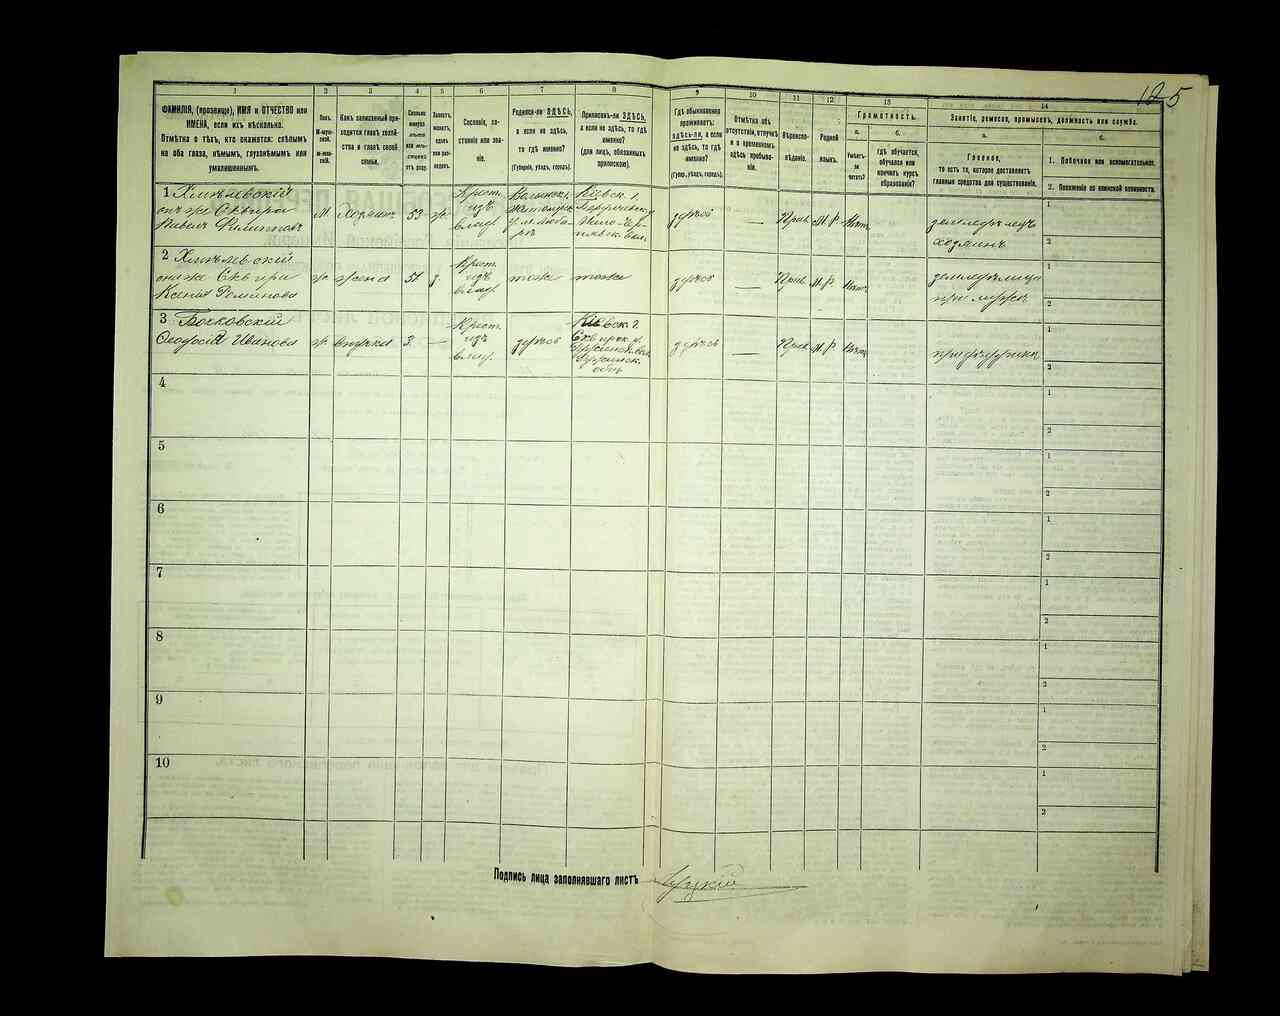 125
1 2 3 4 5 6 7 8 9 10 11 12 13 14
ФАМИЛІЯ, (прозвище), ИМЯ и ОТЧЕСТВО или
ИМЕНА, если ихъ нѣсколько.
Отмѣтка о тѣхъ, кто окажется: слѣпымъ
на оба глаза, нѣмымъ, глухонѣмымъ или
умалишеннымъ.
Полъ.
М-муж-
ской.
Ж-жен-
скій.
Какъ записанный при-
ходится главѣ хозяй-
ства и главѣ своей
семьи.
Сколько
минуло
лѣтъ
или мѣ-
сяцевъ
отъ роду.
Холостъ,
женатъ,
вдовъ
или раз-
веденъ.
Сословіе, со-
стояніе или зва-
ніе.
Родился-ли ЗДѢСЬ,
а если не здѣсь,
то гдѣ именно?
(Губернія, уѣздъ, городъ).
Приписанъ-ли ЗДѢСЬ,
а если не здѣсь, то гдѣ
именно?
(для лицъ, обязанныхъ
припискою).
Гдѣ обыкновенно
проживаетъ:
здѣсь-ли, а если
не здѣсь, то гдѣ
именно?
(Губер., уѣздъ, городъ).
Отмѣтка объ
отсутствіи, отлучкѣ
и о временномъ
здѣсь пребыва-
ніи.
Вѣроиспо-
вѣданіе.
Родной
языкъ.
Грамотность.
а.
Умѣетъ-
ли
читать?
б.
гдѣ обучается,
обучался или
кончилъ курсъ
образованія?
Занятіе, ремесло, промыселъ, должность или служба.
а.
Главное,
то есть то, которое доставляетъ
главныя средства для существованія.
б.
1. Побочное или вспомогательное.
2. Положеніе по воинской повинности.
1 Хмѣлевскій
онъ же Сквира
Павелъ Филипповъ
м. хозяинъ 53 ж.
Крест.
изъ
влад.
Кіевск. г.
здѣсь
—
Прав. М. Р. Нѣт.
земледѣлецъ
хозяинъ
1
2
2 Хмѣлевскій
она же Сквира
Ксенія Романова
ж жена 51 з.
Крест.
изъ
влад.
тоже тоже здѣсь
—
Прав. М. Р. Нѣт.
при мужѣ
1
2
3 Бочковскій
Ѳеодосія Иванова
ж внучка 3. —
Крест.
изъ
влад.
здѣсь
Кіевск. г.
здѣсь
—
Прав. М. Р. Нѣт.
при дѣдушкѣ
1
2
4
1
2
5
1
2
6
1
2
7
1
2
8
1
2
9
1
2
10
1
2
Подпись лица заполнявшаго листъ